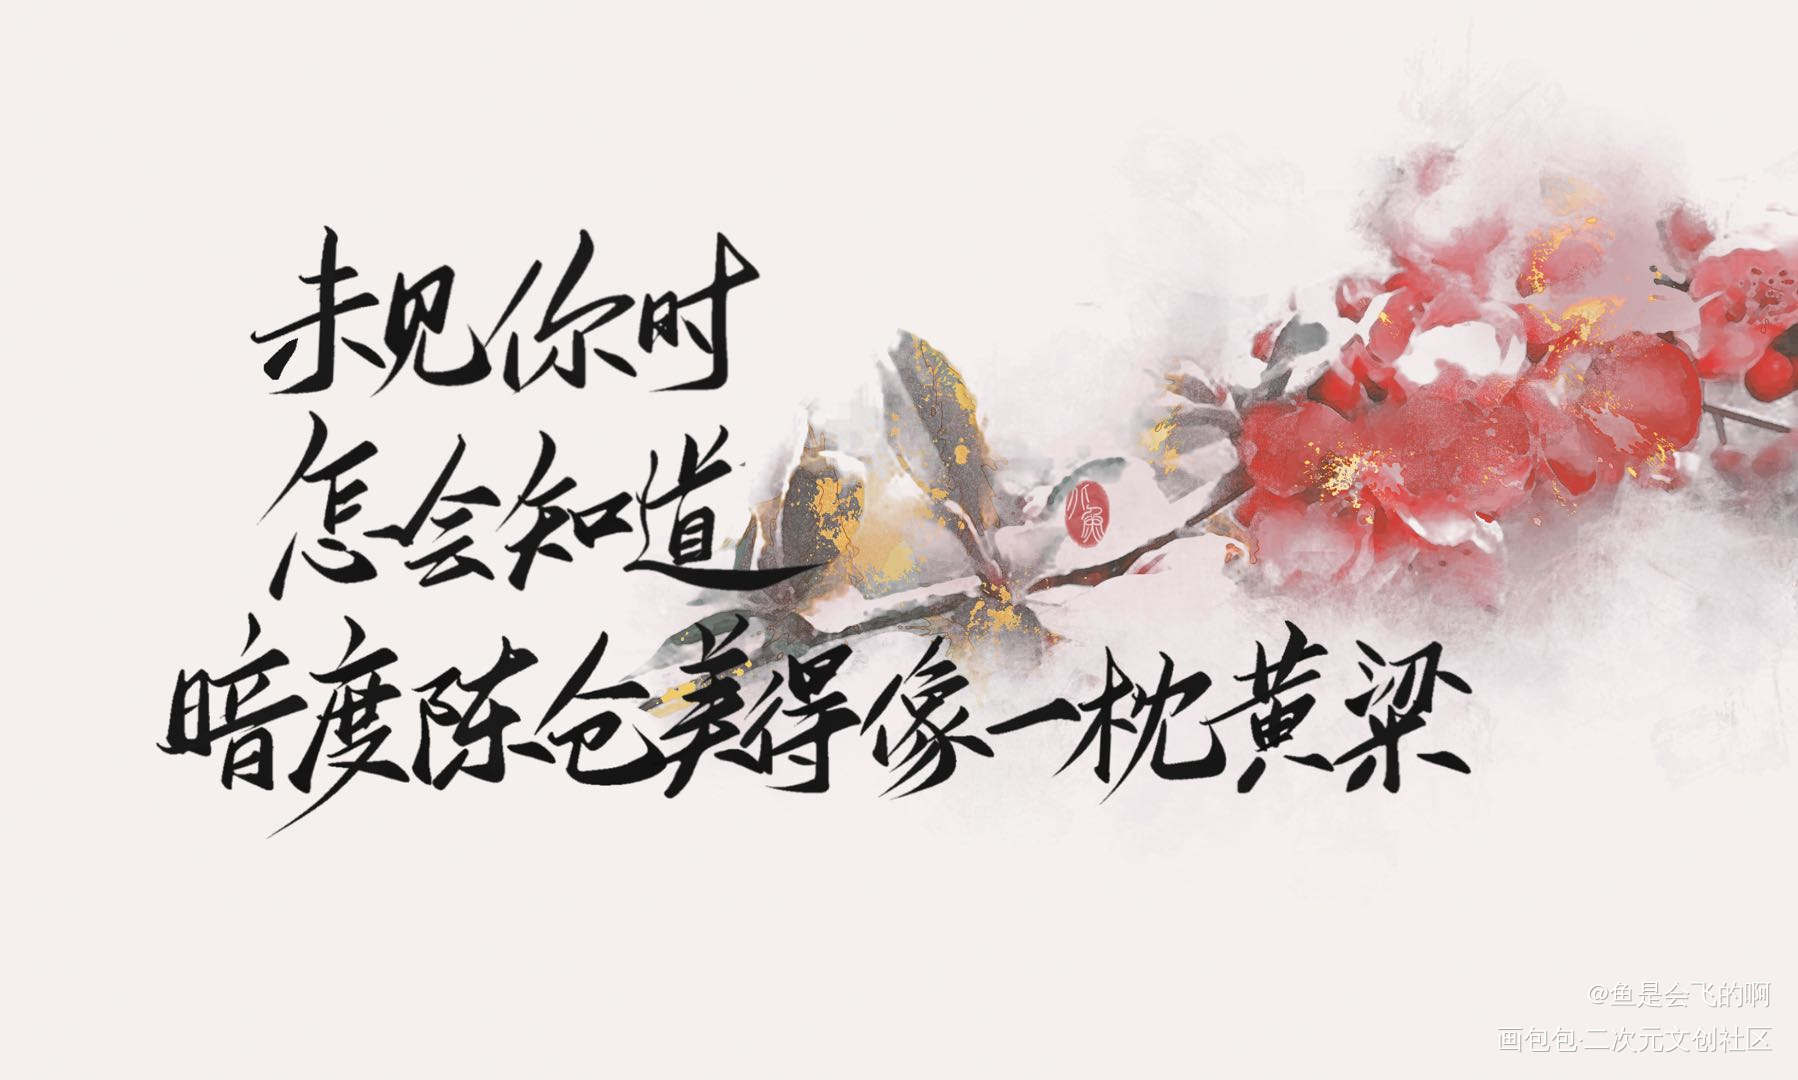 未见你时
怎会知道
暗度陈仓美得像一枕黄粱
小魚
@鱼是会飞的啊
画包包·二次元文创社区